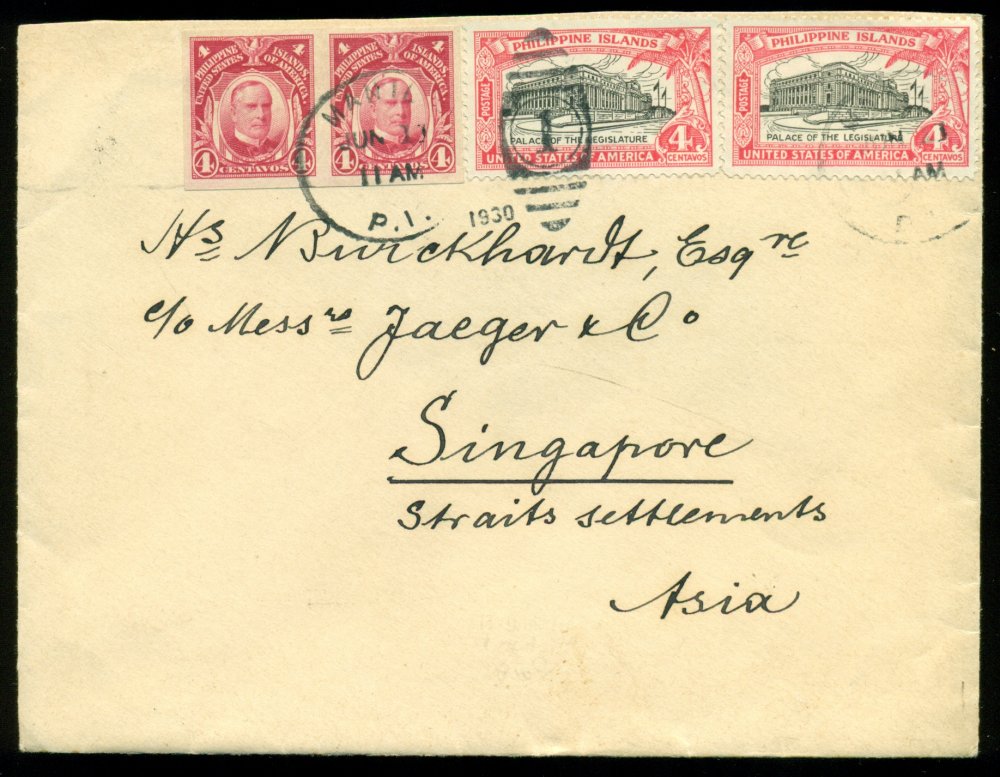 4 PHILIPPINE ISLANDS 4
UNITED STATES OF AMERICA
4 CENTAVOS 4
4 PHILIPPINE ISLANDS 4
UNITED STATES OF AMERICA
4 CENTAVOS 4
PHILIPPINE ISLANDS
POSTAGE
PALACE OF THE LEGISLATURE
4 CENTAVOS
UNITED STATES OF AMERICA
PHILIPPINE ISLANDS
POSTAGE
PALACE OF THE LEGISLATURE
4 CENTAVOS
UNITED STATES OF AMERICA
JUN
11 AM
P.I.
1930
1
AM
P
Hs Burckhardt, Esqre
c/o Messrs Jaeger & Co
Singapore
Straits settlements
Asia